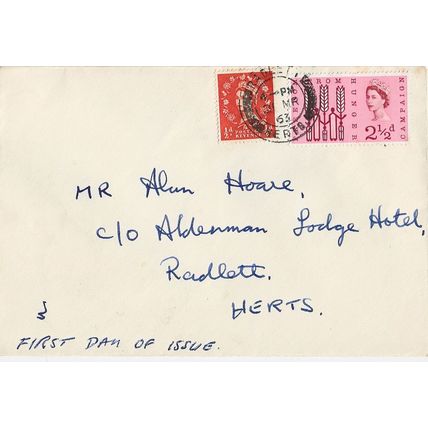 ½d
POSTAGE
REVENUE
PM
MR
63
HERTS
FREEDOM FROM HUNGER CAMPAIGN
2½d
MR Alan Hoare,
c/o Aldenman Lodge Hotel,
Radlett.
HERTS.
FIRST DAY OF ISSUE.